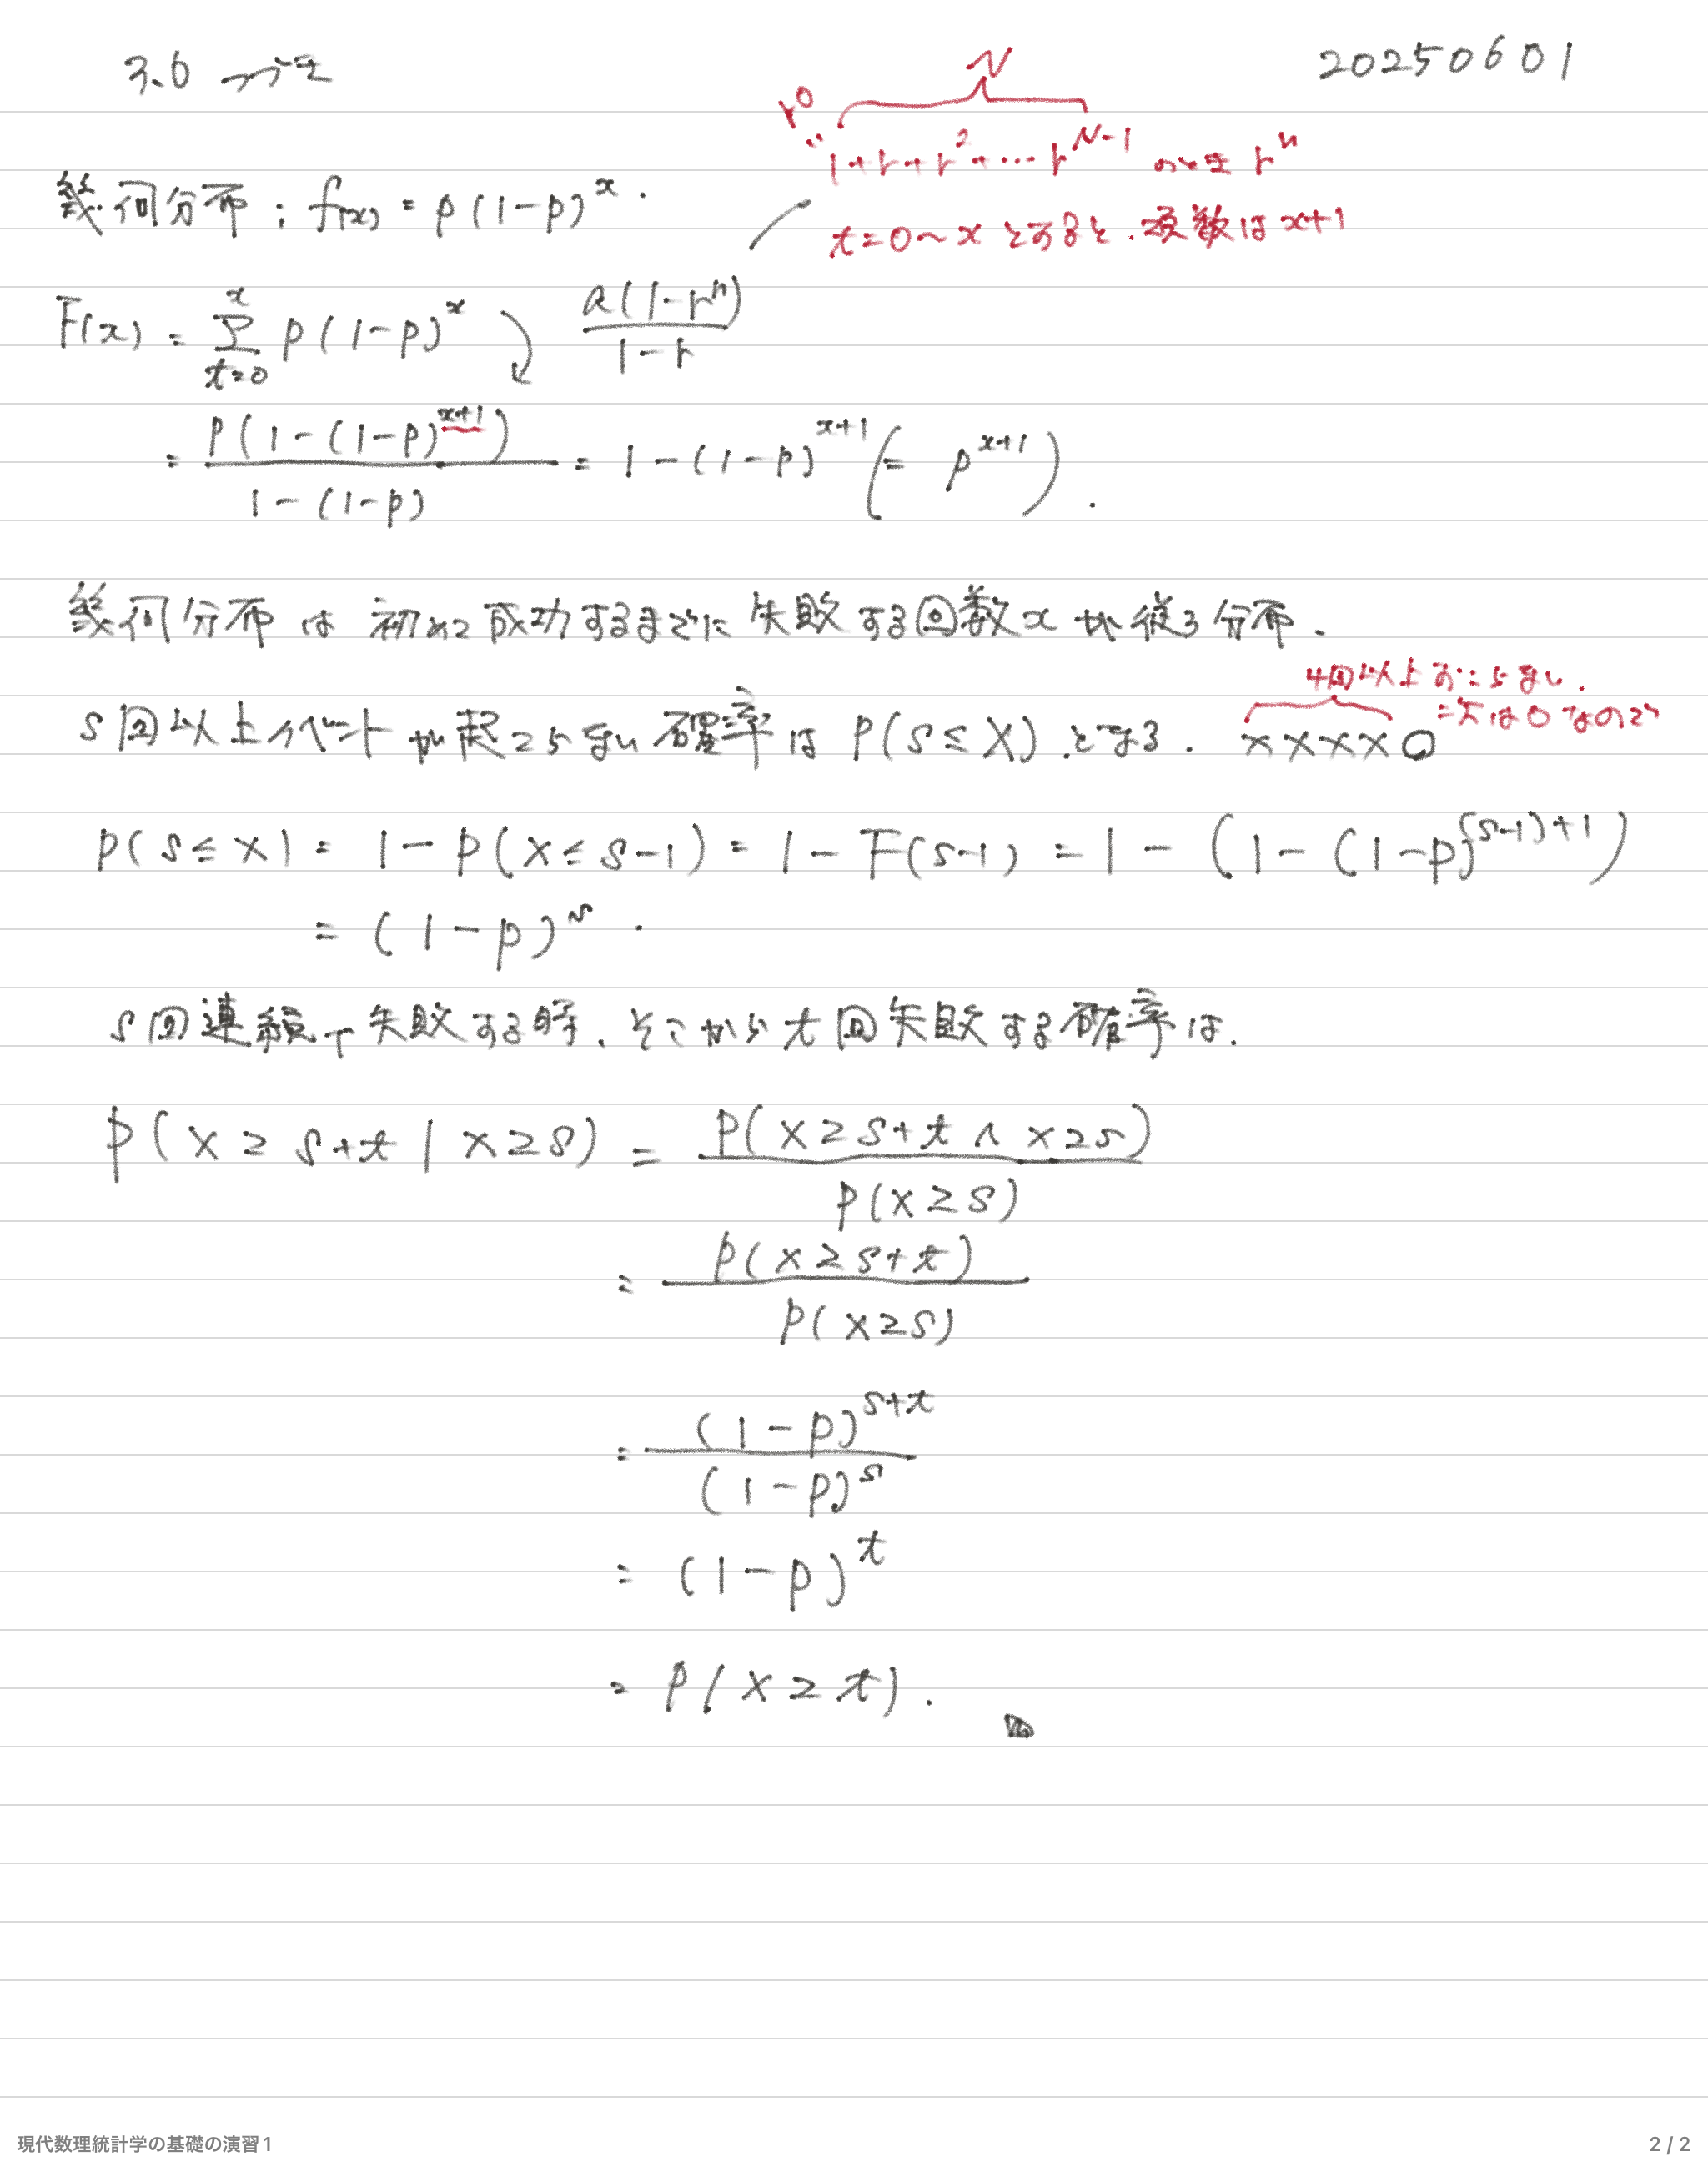 3.6 つづき
20250601
N
r^0
1+r+r^2+…r^{N-1} のとき r^n
t=0~x とすると、項数は x+1
幾何分布; f(x) = p(1-p)^x.
F(x) = Σ_{t=0}^{x} p(1-p)^x
a(1-r^n) / 1-r
= p(1-(1-p)^{x+1}) / 1-(1-p) = 1-(1-p)^{x+1} (= p^{x+1}).
幾何分布は 初めて成功するまでに 失敗する回数 x が従う分布.
4回以上おこらない.
=次は0なので
s回以上イベントが起こらない確率は P(s≤X).となる. ××××○
P(s≤X) = 1-P(X≤s-1) = 1-F(s-1) = 1-(1-(1-p)^{(s-1)+1})
= (1-p)^s.
s回連続で失敗する時、そこからt回失敗する確率は.
P(X≥s+t | X≥s) = P(X≥s+t ∧ X≥s) / P(X≥s)
= P(X≥s+t) / P(X≥s)
= (1-p)^{s+t} / (1-p)^s
= (1-p)^t
= P(X≥t).
現代数理統計学の基礎の演習1
2 / 2